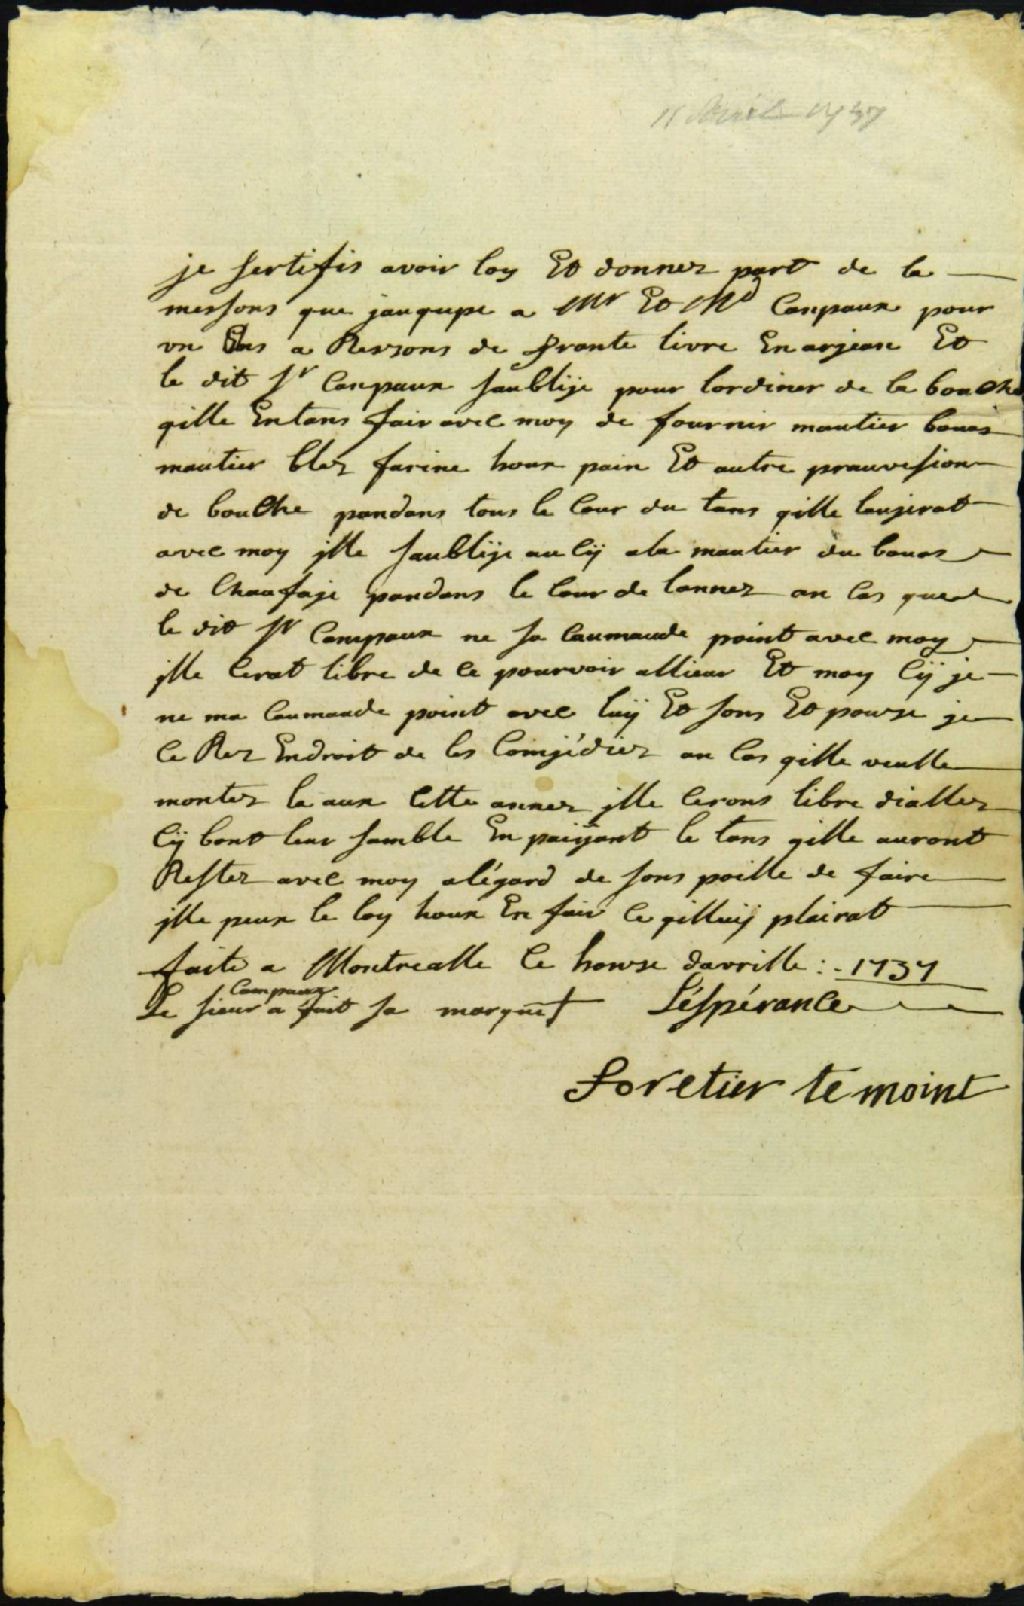 11 Avril 1737
je sertifis avoir loy Et donner part de la
messons que jauqupe a Mr Et Md Canpaux pour
un Ans a Rersons de trante livre En arjean Et
le dit Sr Canpaux saublije pour lordiner de la bouche
qille Entans fair avec moy de fournir mautier bauos
mautier blez farine houx pain Et autre prauvesion
de bouche pandans tous le Cour du tans qille laujerat
avec moy jlle saublije aucÿ ala mautier du bauos
de Chaufaje pandans le Cour de lannez an Cas que
le dit Sr Canpaux ne sa Caumaude point avec moy
jlle Cerat libre de Ce pourvoir allieur Et moy Cÿ je
ne ma Caumaude point avec luÿ Et sons Et pouze je
Ce Rez Endroit de les Comjédiez an Cas qille veulle
montez la aux Cette annez jlle Cerons libre dialler
Cÿ bont leur samble En paiÿant le tans qille auront
Rester avec moy alégard de sons poille de faire
jlle peux le loy houx En fair Ce qilluÿ plairat
faite a Montrealle Ce honze davrille :- 1737
Le sieur Campaux a fait sa marque + Léspérance
foretier temoint